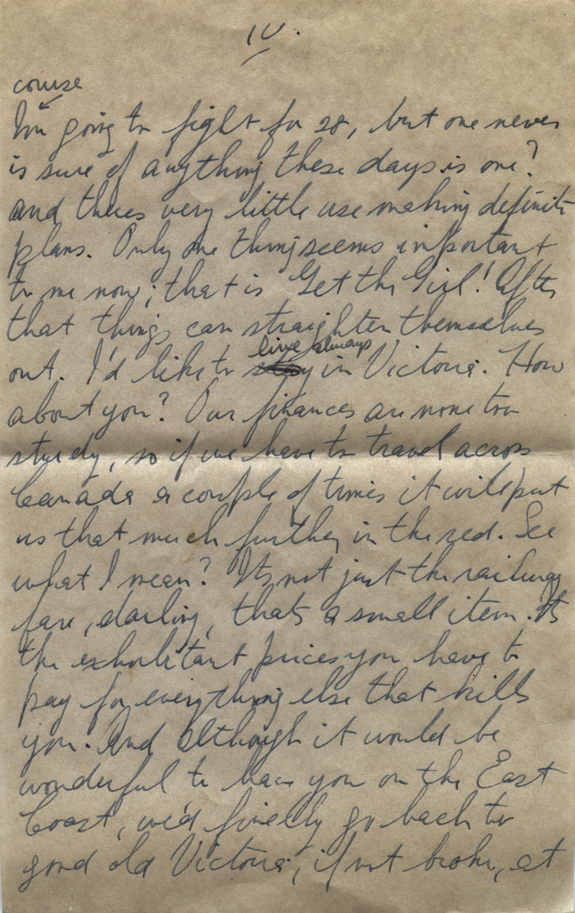 IV.
course
I'm going to fight for 28, but one never
is sure of anything these days is one?
and theres very little use making definite
plans. Only one thing seems important
to me now; that is "Get the Girl! After
that things can straighten themselves
live always
out. I'd like to stay in Victoria. How
about you? Our finances are none too
sturdy, so if we have to travel across
Canada a couple of times it will put
us that much further in the red. See
what I mean? Its not just the railway
fare, darling, thats a small item. Its
the exhorbitant prices you have to
pay for everything else that kills
you. And although it would be
wonderful to have you on the East
Coast, we'd finally go back to
good old Victoria, if not broke, at